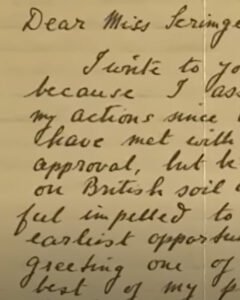 Dear Miss Scrimge
I write to yo
because I ass
my actions since
have met with
approval, but h
on British soil
feel impelled to
earliest opportun
greeting one of
best of my p